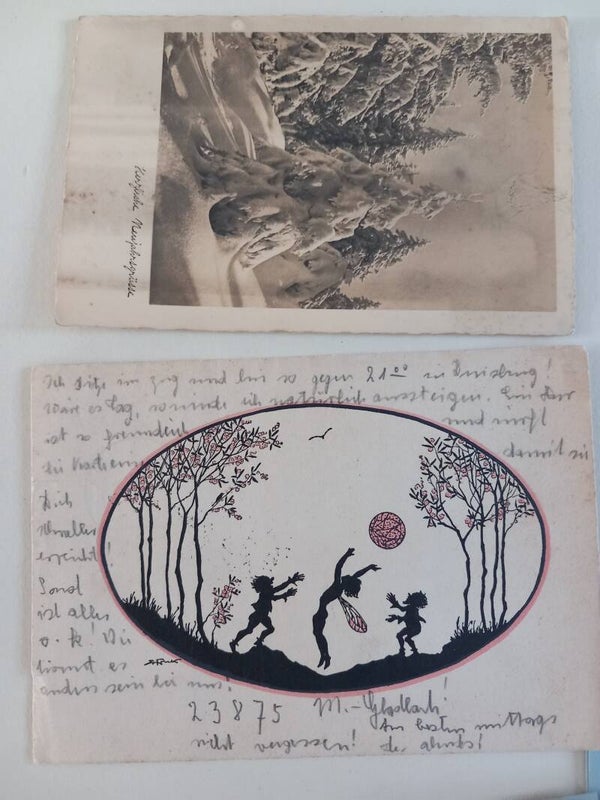 Herzliche Neujahrsgrüsse
Ich sitze im Zug und bin so gegen 21⁰⁰ in Duisburg!
Wäre es Tag, so würde ich natürlich aussteigen. Ein Herr
ist so freundlich und wirft
die Karte ein damit sie
Dich
schneller
erreicht!
Sonst
ist alles
o. k! Wie
könnt es
anders sein bei uns!
23875 M.-Gladbach!
Am besten mittags
nicht vergessen! der abends!